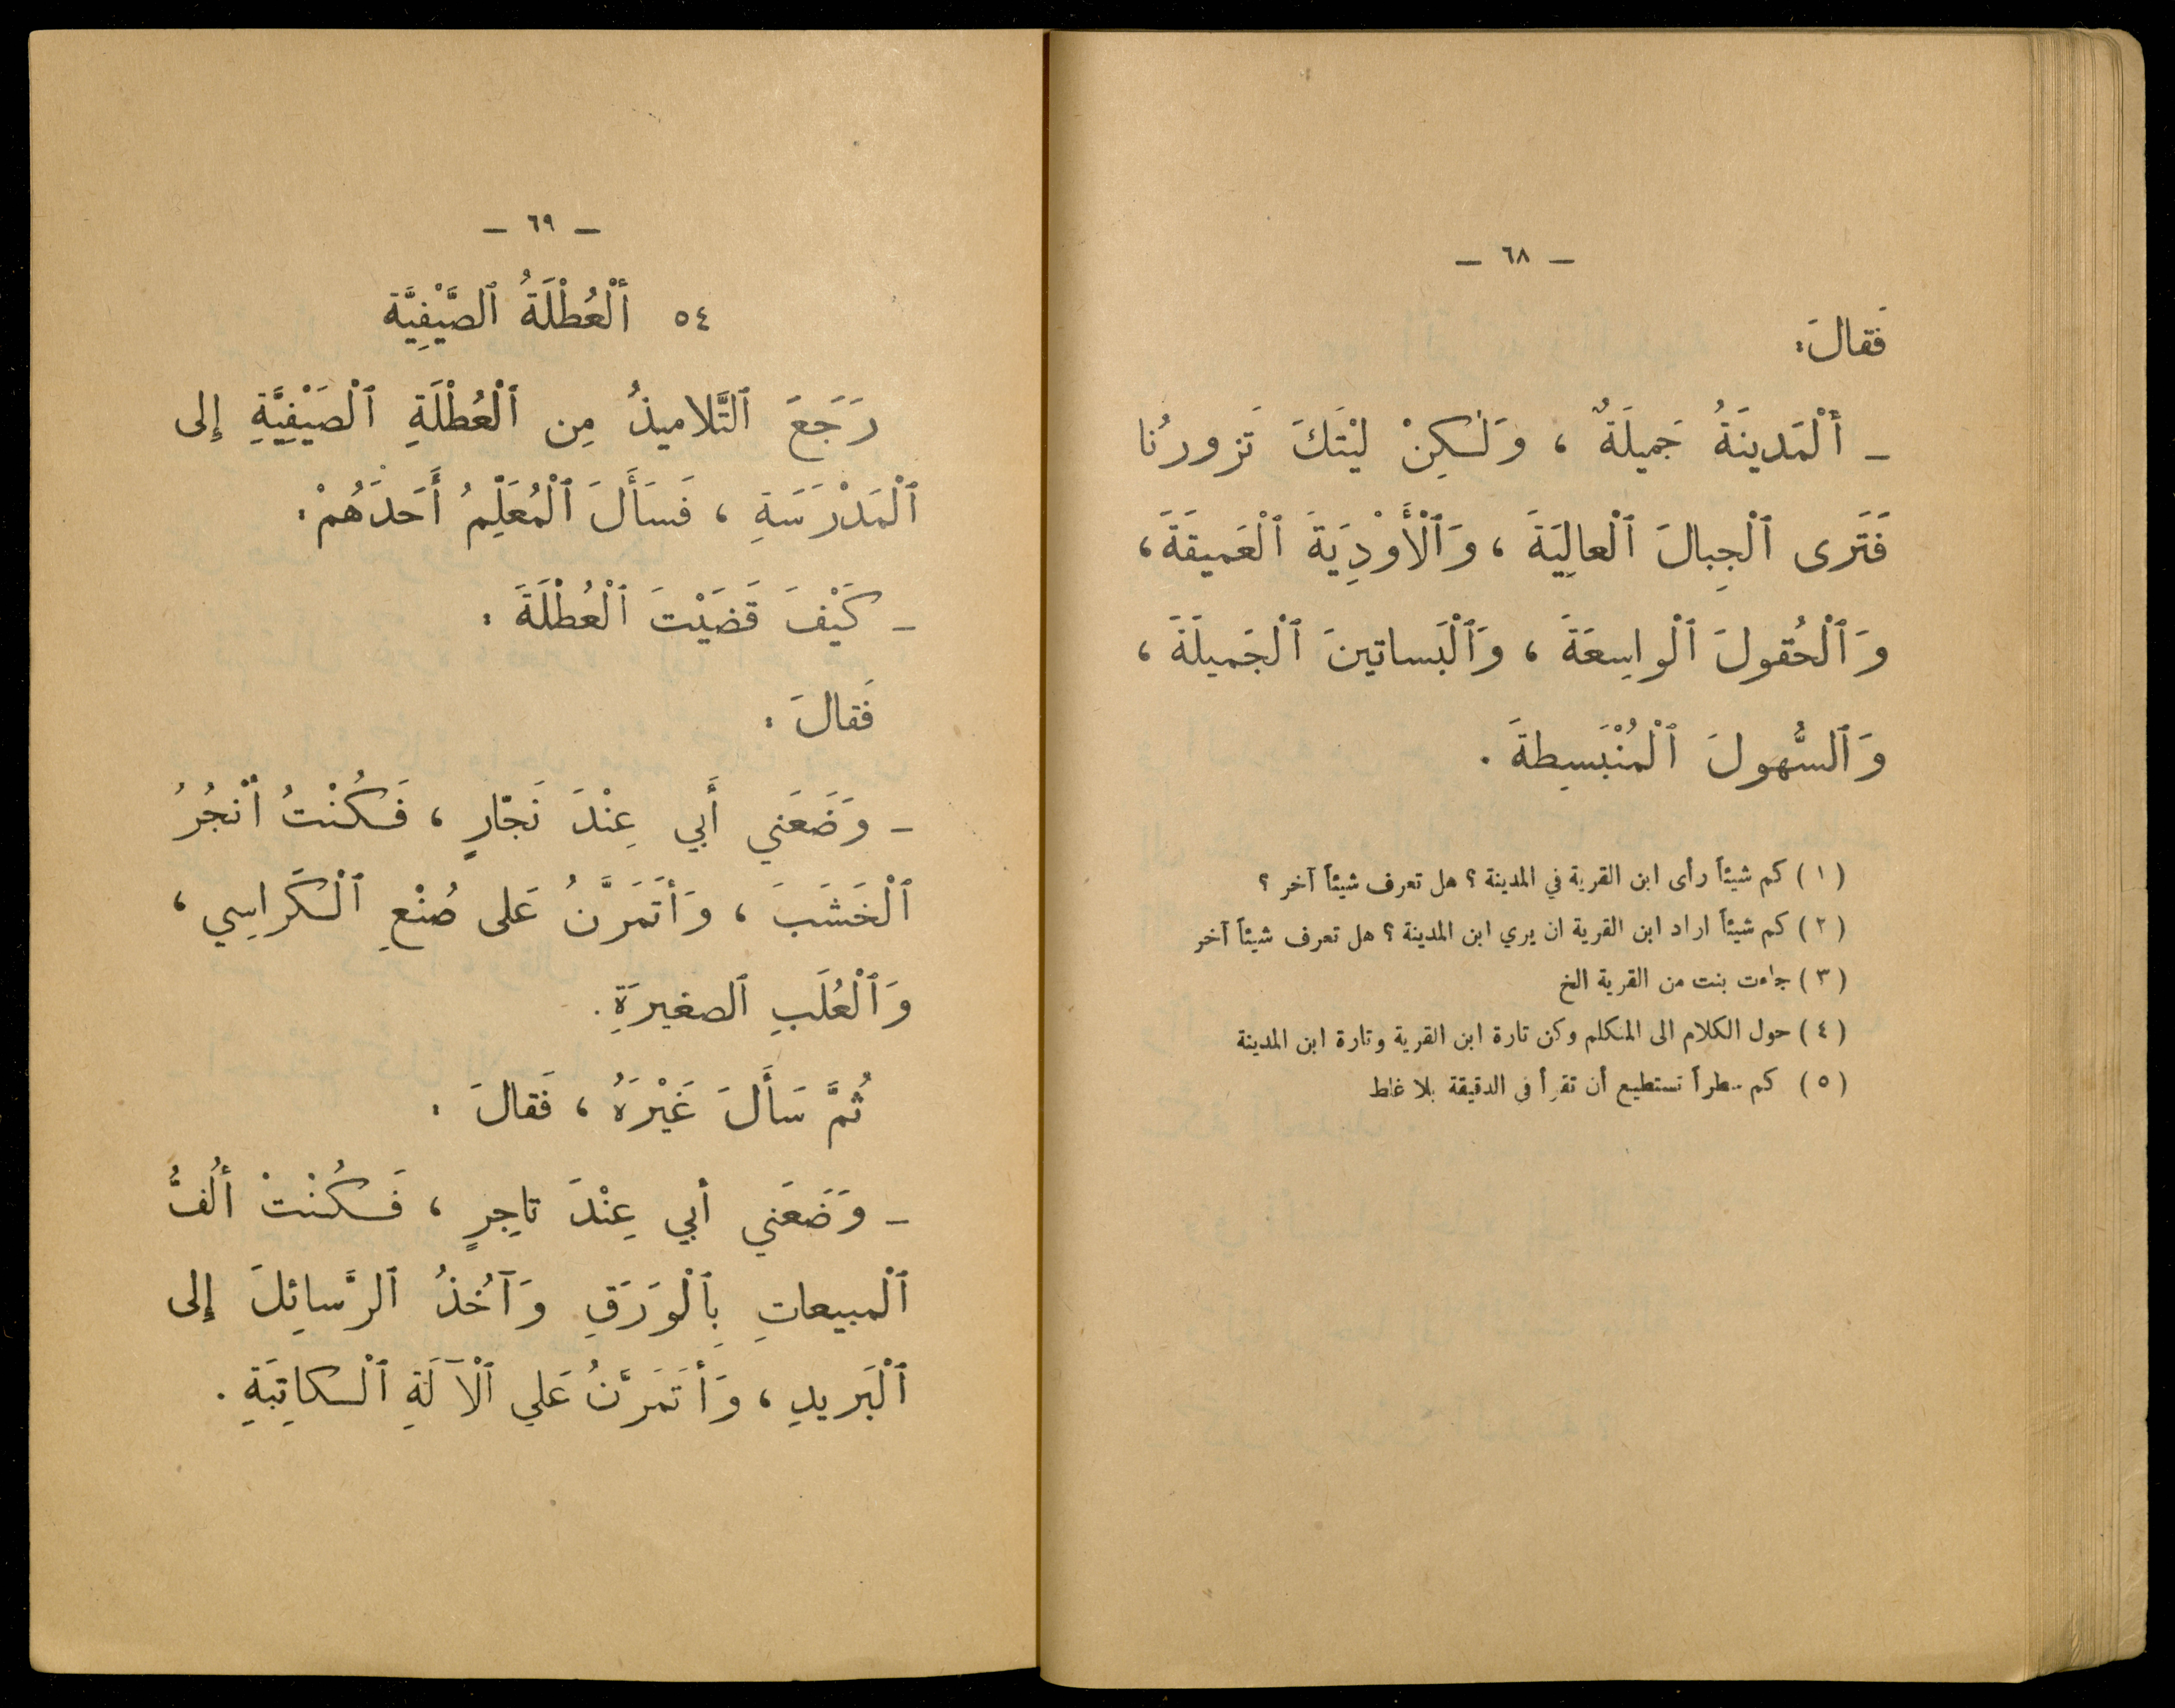 — ٦٨ —
فَقالَ:
— أَلْمَدينَةُ جَميلَةٌ ، وَلٰكِنْ لَيْتَكَ تَزورُنا
فَتَرى ٱلْجِبالَ ٱلْعالِيَةَ ، وَٱلْأَوْدِيَةَ ٱلْعَميقَةَ ،
وَٱلْحُقولَ ٱلْواسِعَةَ ، وَٱلْبَساتينَ ٱلْجَميلَةَ ،
وَٱلسُّهولَ ٱلْمُنْبَسِطَةَ .
( ١ ) كم شيئاً رأى ابن القرية في المدينة ؟ هل تعرف شيئاً آخر ؟
( ٢ ) كم شيئاً اراد ابن القرية ان يري ابن المدينة ؟ هل تعرف شيئاً آخر
( ٣ ) جاءت بنت من القرية الخ
( ٤ ) حول الكلام الى المتكلم وكن تارة ابن القرية وتارة ابن المدينة
( ٥ ) كم سطراً تستطيع أن تقرأ في الدقيقة بلا غلط
— ٦٩ —
٥٤ أَلْعُطْلَةُ ٱلصَّيْفِيَّة
رَجَعَ ٱلتَّلاميذُ مِن ٱلْعُطْلَةِ ٱلْصَيْفِيَّةِ إِلى
ٱلْمَدْرَسَةِ ، فَسَأَلَ ٱلْمُعَلِّمُ أَحَدَهُمْ :
— كَيْفَ قَضَيْتَ ٱلْعُطْلَةَ :
فَقالَ :
— وَضَعَني أَبي عِنْدَ نَجّارٍ ، فَكُنْتُ أَنْجُرُ
ٱلْخَشَبَ ، وَأَتَمَرَّنُ عَلى صُنْعِ ٱلْكَراسِي ،
وَٱلْعُلَبِ ٱلصغيرَةِ .
ثُمَّ سَأَلَ غَيْرَهُ ، فَقالَ :
— وَضَعَني أَبي عِنْدَ تاجِرٍ ، فَكُنْتْ أَلُفُّ
ٱلْمبيعاتِ بِٱلْوَرَقِ وَآخُذُ ٱلرَّسائِلَ إِلى
ٱلْبَريدِ ، وَأَتَمَرَّنُ عَلي ٱلْآلَةِ ٱلْكاتِبَةِ .